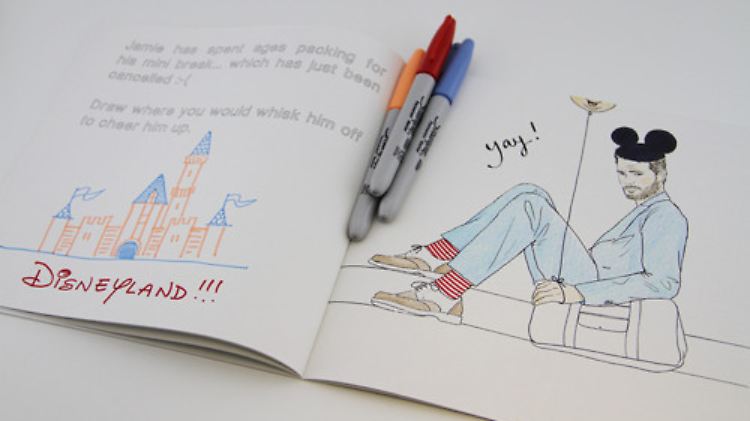 Jamie has spent ages packing for
his mini break... which has just been
cancelled :-(
Draw where you would whisk him off
to cheer him up.
DISNEYLAND!!!
yay..!
Sharpie
Sharpie
Sharpie